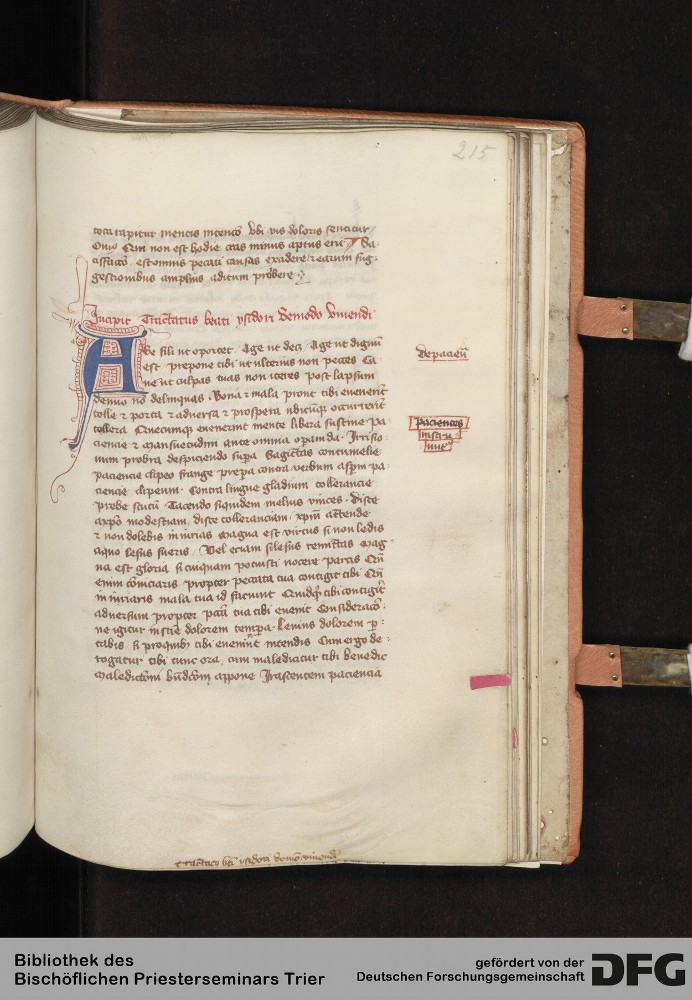 215
tota rapitur mentis intencio vbi vis doloris sentitur
Quia Qui non est hodie cras minus aptus erit Sa-
cissio est omnis peccati causas exadere et earum sug-
gestionibus amplius aditum probere
Incipit Tractatus beati ysidori de modo viuendi
Age fili ut oportet Age ut decet Age ut dignum
est prepone tibi ut ulterius non pecces Ca-
ue ut culpas tuas non iteres Post lapsum
denuo non delinquas Bona et mala prout tibi euenerint
tolle et porta et aduersa et prospera ubicumque occurrerint
tollera Quecumque euenerint mente libera sustine pa-
ciencie et mansuetudini ante omnia operam da Irrisio-
num probra despiciendo supera Sagittas contumelie
paciencie clipeo frange prepara contra verbum asperum pa-
ciencie clipeum Contra lingue gladium tollerancie
prebe scutum Tacendo siquidem melius vinces Disce
a xpo modestiam disce tolleranciam xpm attende
et non dolebis iniurias Magna est virtus si non ledis
a quo lesus fueris Vel eciam si lesus remittas Mag-
na est gloria si cuiquam potuisti nocere parcis
enim propter peccata tua contigit tibi
iniuriaris mala tua id faciunt Quidquid tibi contigit
aduersum propter peccata tua tibi euenit Consideracio-
ne igitur iusticie dolorem tempera Lenius dolorem por-
tabis si pro quibus tibi euenerint intendis Cum ergo de-
rogatur tibi tunc ora cum maledicitur tibi benedic
Maledictioni benedictionem appone Irascentem paciencia
de paciencia
Pacientes
Tractatus beati ysidori de modo viuendi
Bibliothek des
Bischöflichen Priesterseminars Trier
gefördert von der
Deutschen Forschungsgemeinschaft
DFG